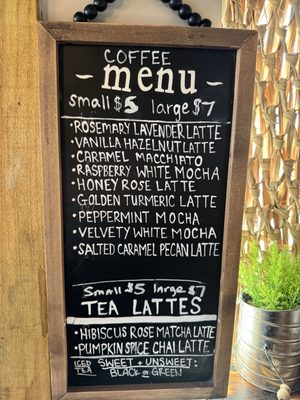 COFFEE
menu
small $5 large $7
•ROSEMARY LAVENDER LATTE
•VANILLA HAZELNUT LATTE
•CARAMEL MACCHIATO
•RASPBERRY WHITE MOCHA
•HONEY ROSE LATTE
•GOLDEN TURMERIC LATTE
•PEPPERMINT MOCHA
•VELVETY WHITE MOCHA
•SALTED CARAMEL PECAN LATTE
small $5 large $7
TEA LATTES
•HIBISCUS ROSE MATCHA LATTE
•PUMPKIN SPICE CHAI LATTE
ICED TEA SWEET + UNSWEET:
BLACK or GREEN